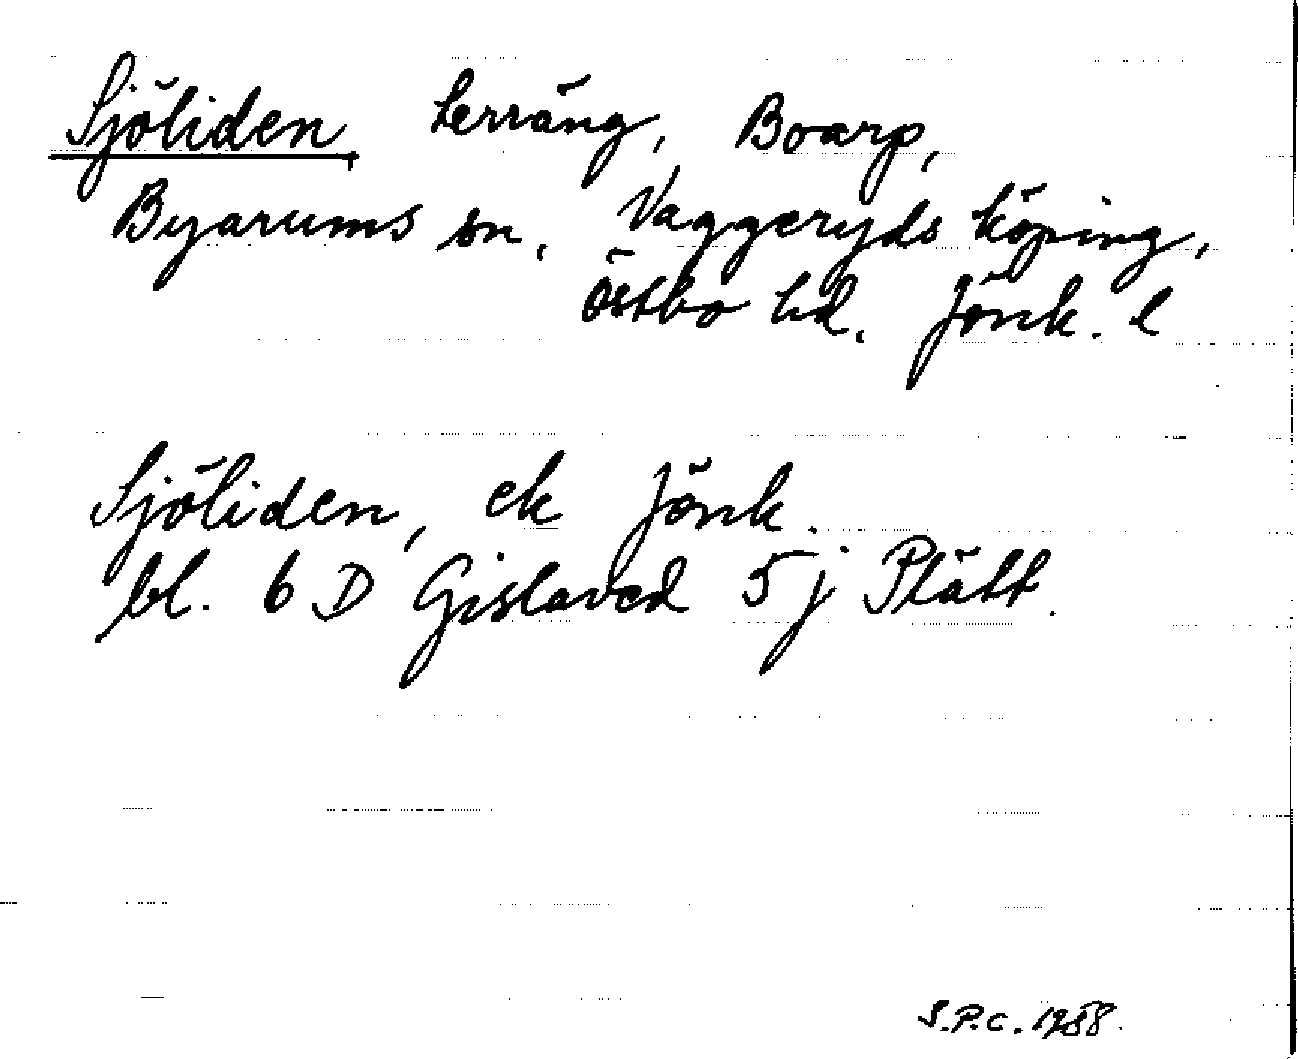 Sjöliden, terräng, Boarp,
Byarums sn, Vaggeryds köping,
Östbo hd, Jönk. l
Sjöliden, ek Jönk.
bl. 6 D Gislaved 5 j Plätt.
S.P.C. 1958.